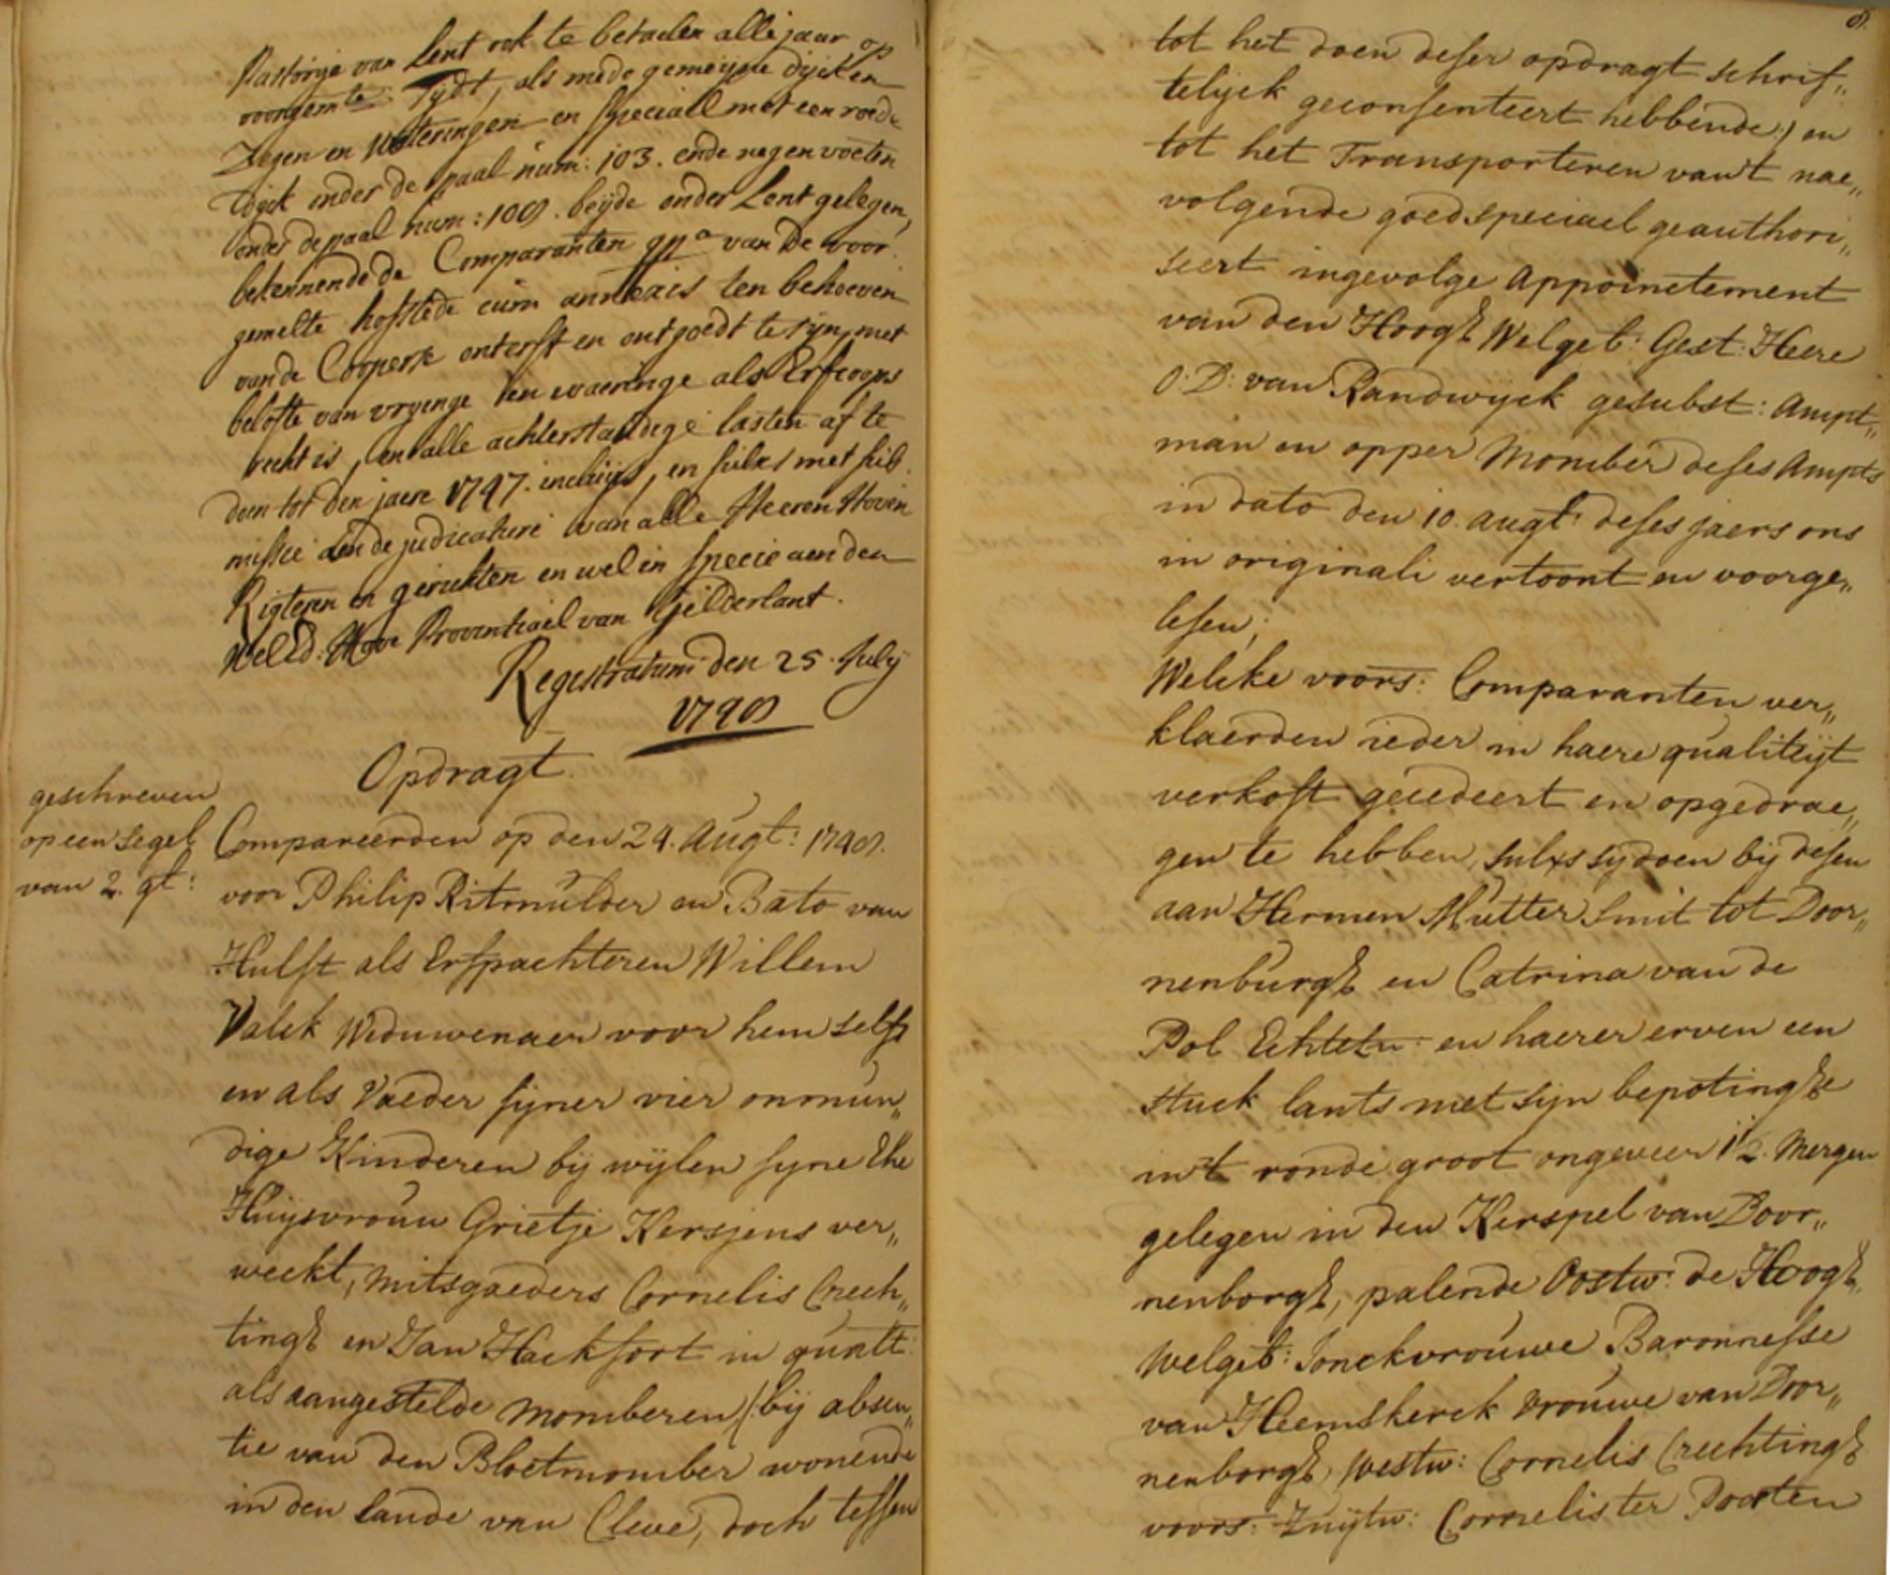 Pastorije van Lent ook te betaelen alle jaar op
voorgemte: Tydt, als mede gemeyne dycken
Zegen en Weteringen en speciael met een roede
dyck onder de paal num: 103. ende negen voeten
onder de paal num: 109. beyde onder Lent gelegen,
bekennende de Comparanten qqa van de voor
gemelte hofstede cum annexis ten behoeven
van de Coopers onterft en ontgoedt te syn, met
belofte van vryenge en waeringe als Erfcoops
recht is, en alle achterstandige lasten af te
doen tot den jaere 1747. incluijs, en sulx met sub
missie aen de judicature van alle Heeren Hoven
Rigteren en gerichten en wel in specie aen den
Wel Ed: Hove Provinciael van Gelderlant.
Registratum den 25. July
1749
Opdragt
geschreven
op een segel
van 2. gl:
Compareerden op den 24. Augt: 1749.
voor Philip Ritmulder en Bato van
Hulst als Erfpachteren Willem
Valck Weduwenaer voor hem selfs
en als Vaeder syner vier onmun„
dige Kinderen bij wijlen syne Ehe
Huijsvrouw Grietje Kersjens ver„
weckt, mitsgaeders Cornelis Crech„
tingh en Jan Hackfort in qualt:
als aangestelde momberen (bij absen„
tie van den Bloetmomber wonende
in den lande van Cleve, doch tessen
tot het doen deser opdragt schrif„
telijck geconsenteert hebbende) en
tot het Transporteren van't nae„
volgende goed speciael geauthori„
seert ingevolge Appoinctement
van den Hoogh Welgeb: Gest: Heere
O: D: van Randwyck gesubst: Ampt„
man en opper Momber deses Ampts
in dato den 10. augt: deses jaers ons
in originali vertoont en voorge„
lesen;
Welcke voors: Comparanten ver„
klaerden ieder in haere qualiteijt
verkoft gecedeert en opgedrae„
gen te hebben, sulx sy doen bij desen
aan Hermen Mutter Smit tot Door„
nenburgh en Catrina van de
Pol Echteln: en haerer erven een
stuck lants met syn bepotinghe
in't ronde groot ongeveer 1 1/2. Mergen
gelegen in den Kerspel van Door„
nenborgh, palende Oostw: de Hoogh
Welgeb: Jonckvrouwe Baronnesse
van Heemskerck Vrouwe van Door„
nenborgh, Westw: Cornelis Crechtingh
voors: Zuytw: Cornelis ter Poorten